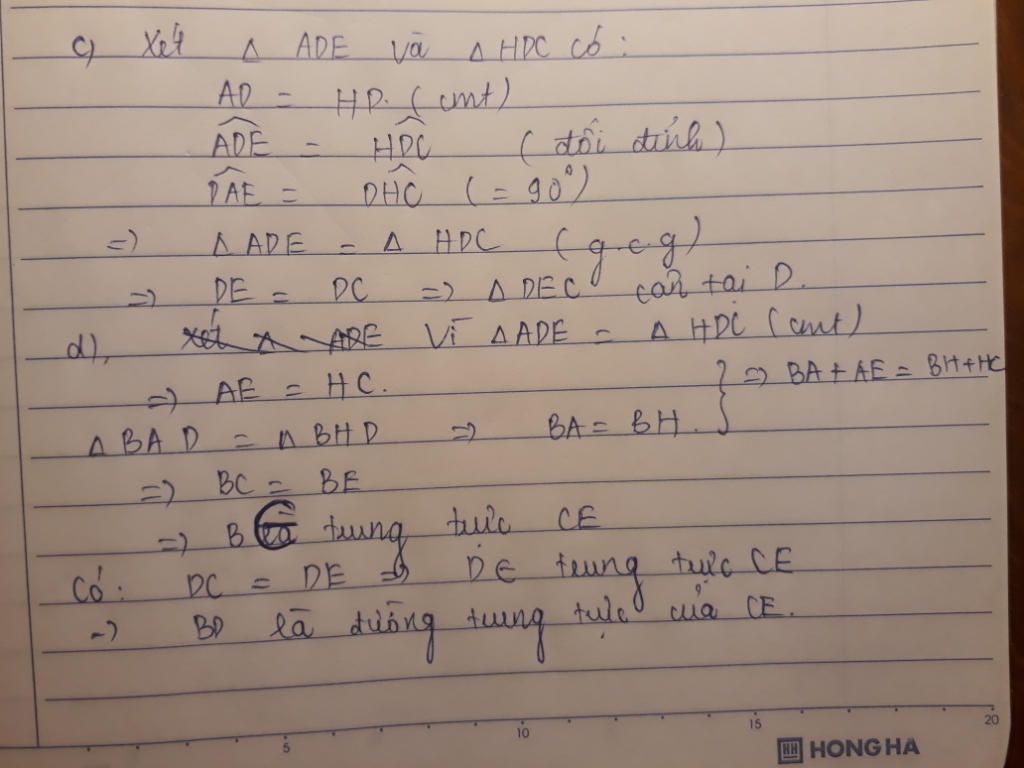 c) Xét Δ ADE và Δ HDC có:
AD = HD. (cmt)
ADE = HDC (đối đỉnh)
DAE = DHC (= 90°)
=) Δ ADE = Δ HDC (g.c.g)
=) DE = DC =) Δ DEC cân tại D.
d), Vì Δ ADE = Δ HDC (cmt)
=) AE = HC.
} =) BA + AE = BH + HC
Δ BAD = Δ BHD =) BA = BH.
=) BC = BE
=) B ∈ trung trực CE
Có: DC = DE =) D ∈ trung trực CE
=) BD là đường trung trực của CE.
5 10 15 20
HH HONG HA